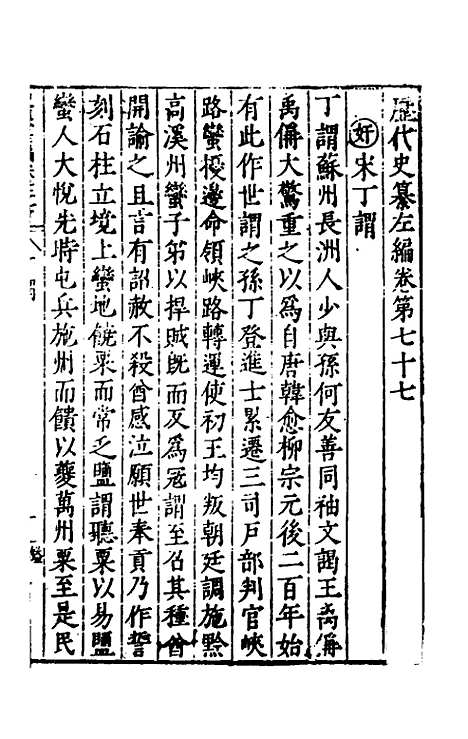 歷代史纂左編卷第七十七
奸宋丁謂
丁謂蘇州長洲人少與孫何友善同袖文謁王禹偁
禹偁大驚重之以爲自唐韓愈柳宗元後二百年始
有此作世謂之孫丁登進士累遷三司戶部判官峽
路蠻擾邊命領峽路轉運使初王均叛朝廷調施黔
高溪州蠻子弟以捍賊旣而反爲冦謂至召其種酋
開諭之且言有詔赦不殺酋感泣願世奉貢乃作誓
刻石柱立境上蠻地饒粟而常乏鹽謂聽粟以易鹽
蠻人大悅先時屯兵施州而饋以夔萬州粟至是民